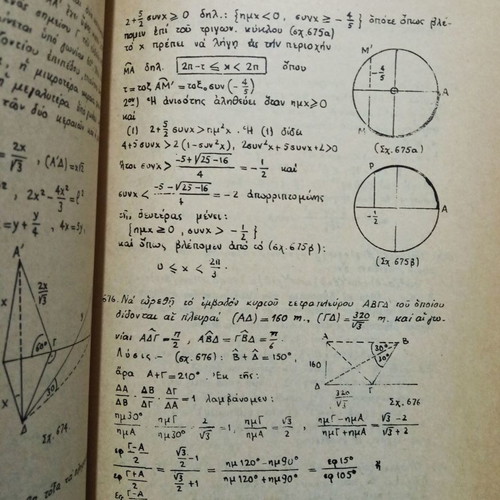 2+5/2 συνx ≥ 0 δηλ.: {ημx < 0, συνx ≥ -4/5} ὁπότε ὅπως βλέ-
πομεν ἐπί τοῦ τριγων. κύκλου (σχ.675α)
τό x πρέπει νά λήγῃ εἰς τήν περιοχήν
M̂A δηλ. 2π-τ ≤ x < 2π ὅπου
τ=τοξ ÂM'=τοξ.συν(-4/5)
2ον) Ἡ ἀνισότης ἀληθεύει ὅταν ημx ≥ 0
καί
(1) 2+5/2 συνx > ημ²x. Ἡ (1) δίδει
4+5συνx > 2(1-συν²x), 2συν²x+5συνx+2>0
ἤτοι συνx > (-5+√(25-16))/4 = -1/2 καί
συνx < (-5-√(25-16))/4 = -2 ἀπορριπτομένης
τῆς δευτέρας μένει:
{ημx ≥ 0, συνx > -1/2}
καί ὅπως βλέπομεν ἀπό τό (σχ.675β):
0 ≤ x < 2π/3.
M'
-4/5
M
A
(Σχ.675α)
P
-1/2
A
(Σχ 675β)
676. Νά εὑρεθῇ τό ἐμβαδόν κυρτοῦ τετραπλεύρου ΑΒΓΔ τοῦ ὁποίου
δίδονται αἱ πλευραί (ΑΔ) = 160 m, (ΓΔ) = 320/√3 m. καί αἱ γω-
νίαι ΑΔ̂Γ = π/2, ΑΒ̂Δ = ΓΒ̂Δ = π/6.
Λύσις.- (σχ.676): Β̂+Δ̂ = 150°,
ἄρα Α+Γ=210°. Ἐκ τῆς:
ΔΑ/ΔΒ · ΔΒ/ΔΓ · ΔΓ/ΔΑ = 1 λαμβάνομεν:
ημ30°/ημΑ · ημΓ/ημ30° · 2/√3 = 1, ημΓ/ημΑ = √3/2, (ημΓ-ημΑ)/(ημΓ+ημΑ) = (√3-2)/(√3+2)
εφ (Γ-Α)/2 / εφ (Γ+Α)/2 = (√3/2 -1)/(√3/2 +1) = (ημ120°-ημ90°)/(ημ120°+ημ90°) = εφ15°/εφ105° ἤ
Α
Β
30°
30°
160
Δ
Γ
320/√3
Σχ. 676
2x/√3, (Α'Δ)=x√2
2x² - 4x²/3 = ξ²
=y+y/4, 4x=5y,
Α'
2x/√3
x
60°
Γ
x
30
Δ
Σχ. 674